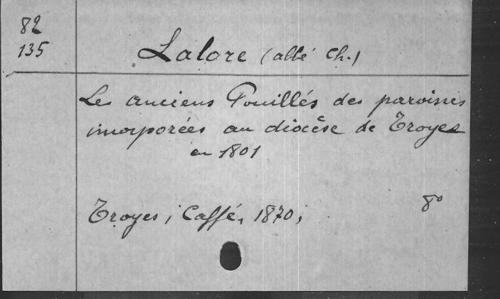 82
135
Lalore (abbé Ch.)
Les anciens Pouillés des paroisses
incorporées au diocèse de Troyes
en 1801
Troyes; Caffé, 1870; 8°